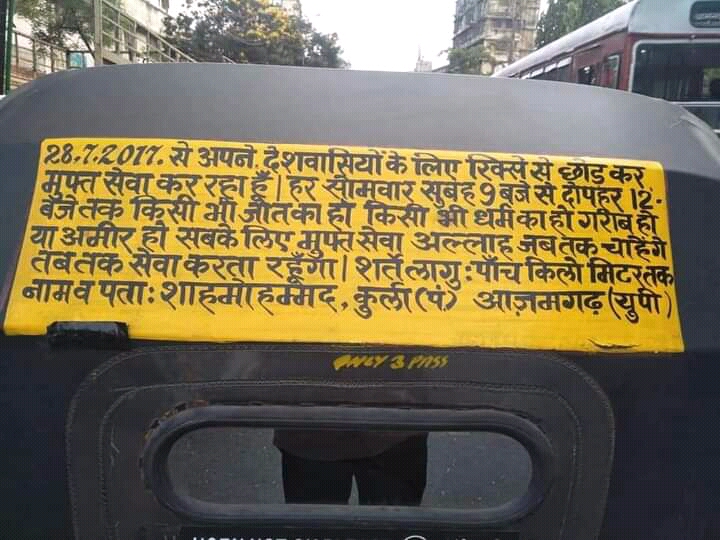 28.7.2017. से अपने देशवासियों के लिए रिक्से से छोड कर
मुफ्त सेवा कर रहा हूँ। हर सोमवार सुबह 9 बजे से दोपहर 12.
बजे तक किसी भी जात का हो किसी भी धर्म का हो गरीब हो
या अमीर हो सबके लिए मुफ्त सेवा अल्लाह जब तक चाहेंगे
तब तक सेवा करता रहूँगा। शर्ते लागु : पाँच किलो मिटर तक
नाम व पता : शाहमोहम्मद, कुर्ला (पं) आज़मगढ़ (युपी)
ONLY 3 PASS